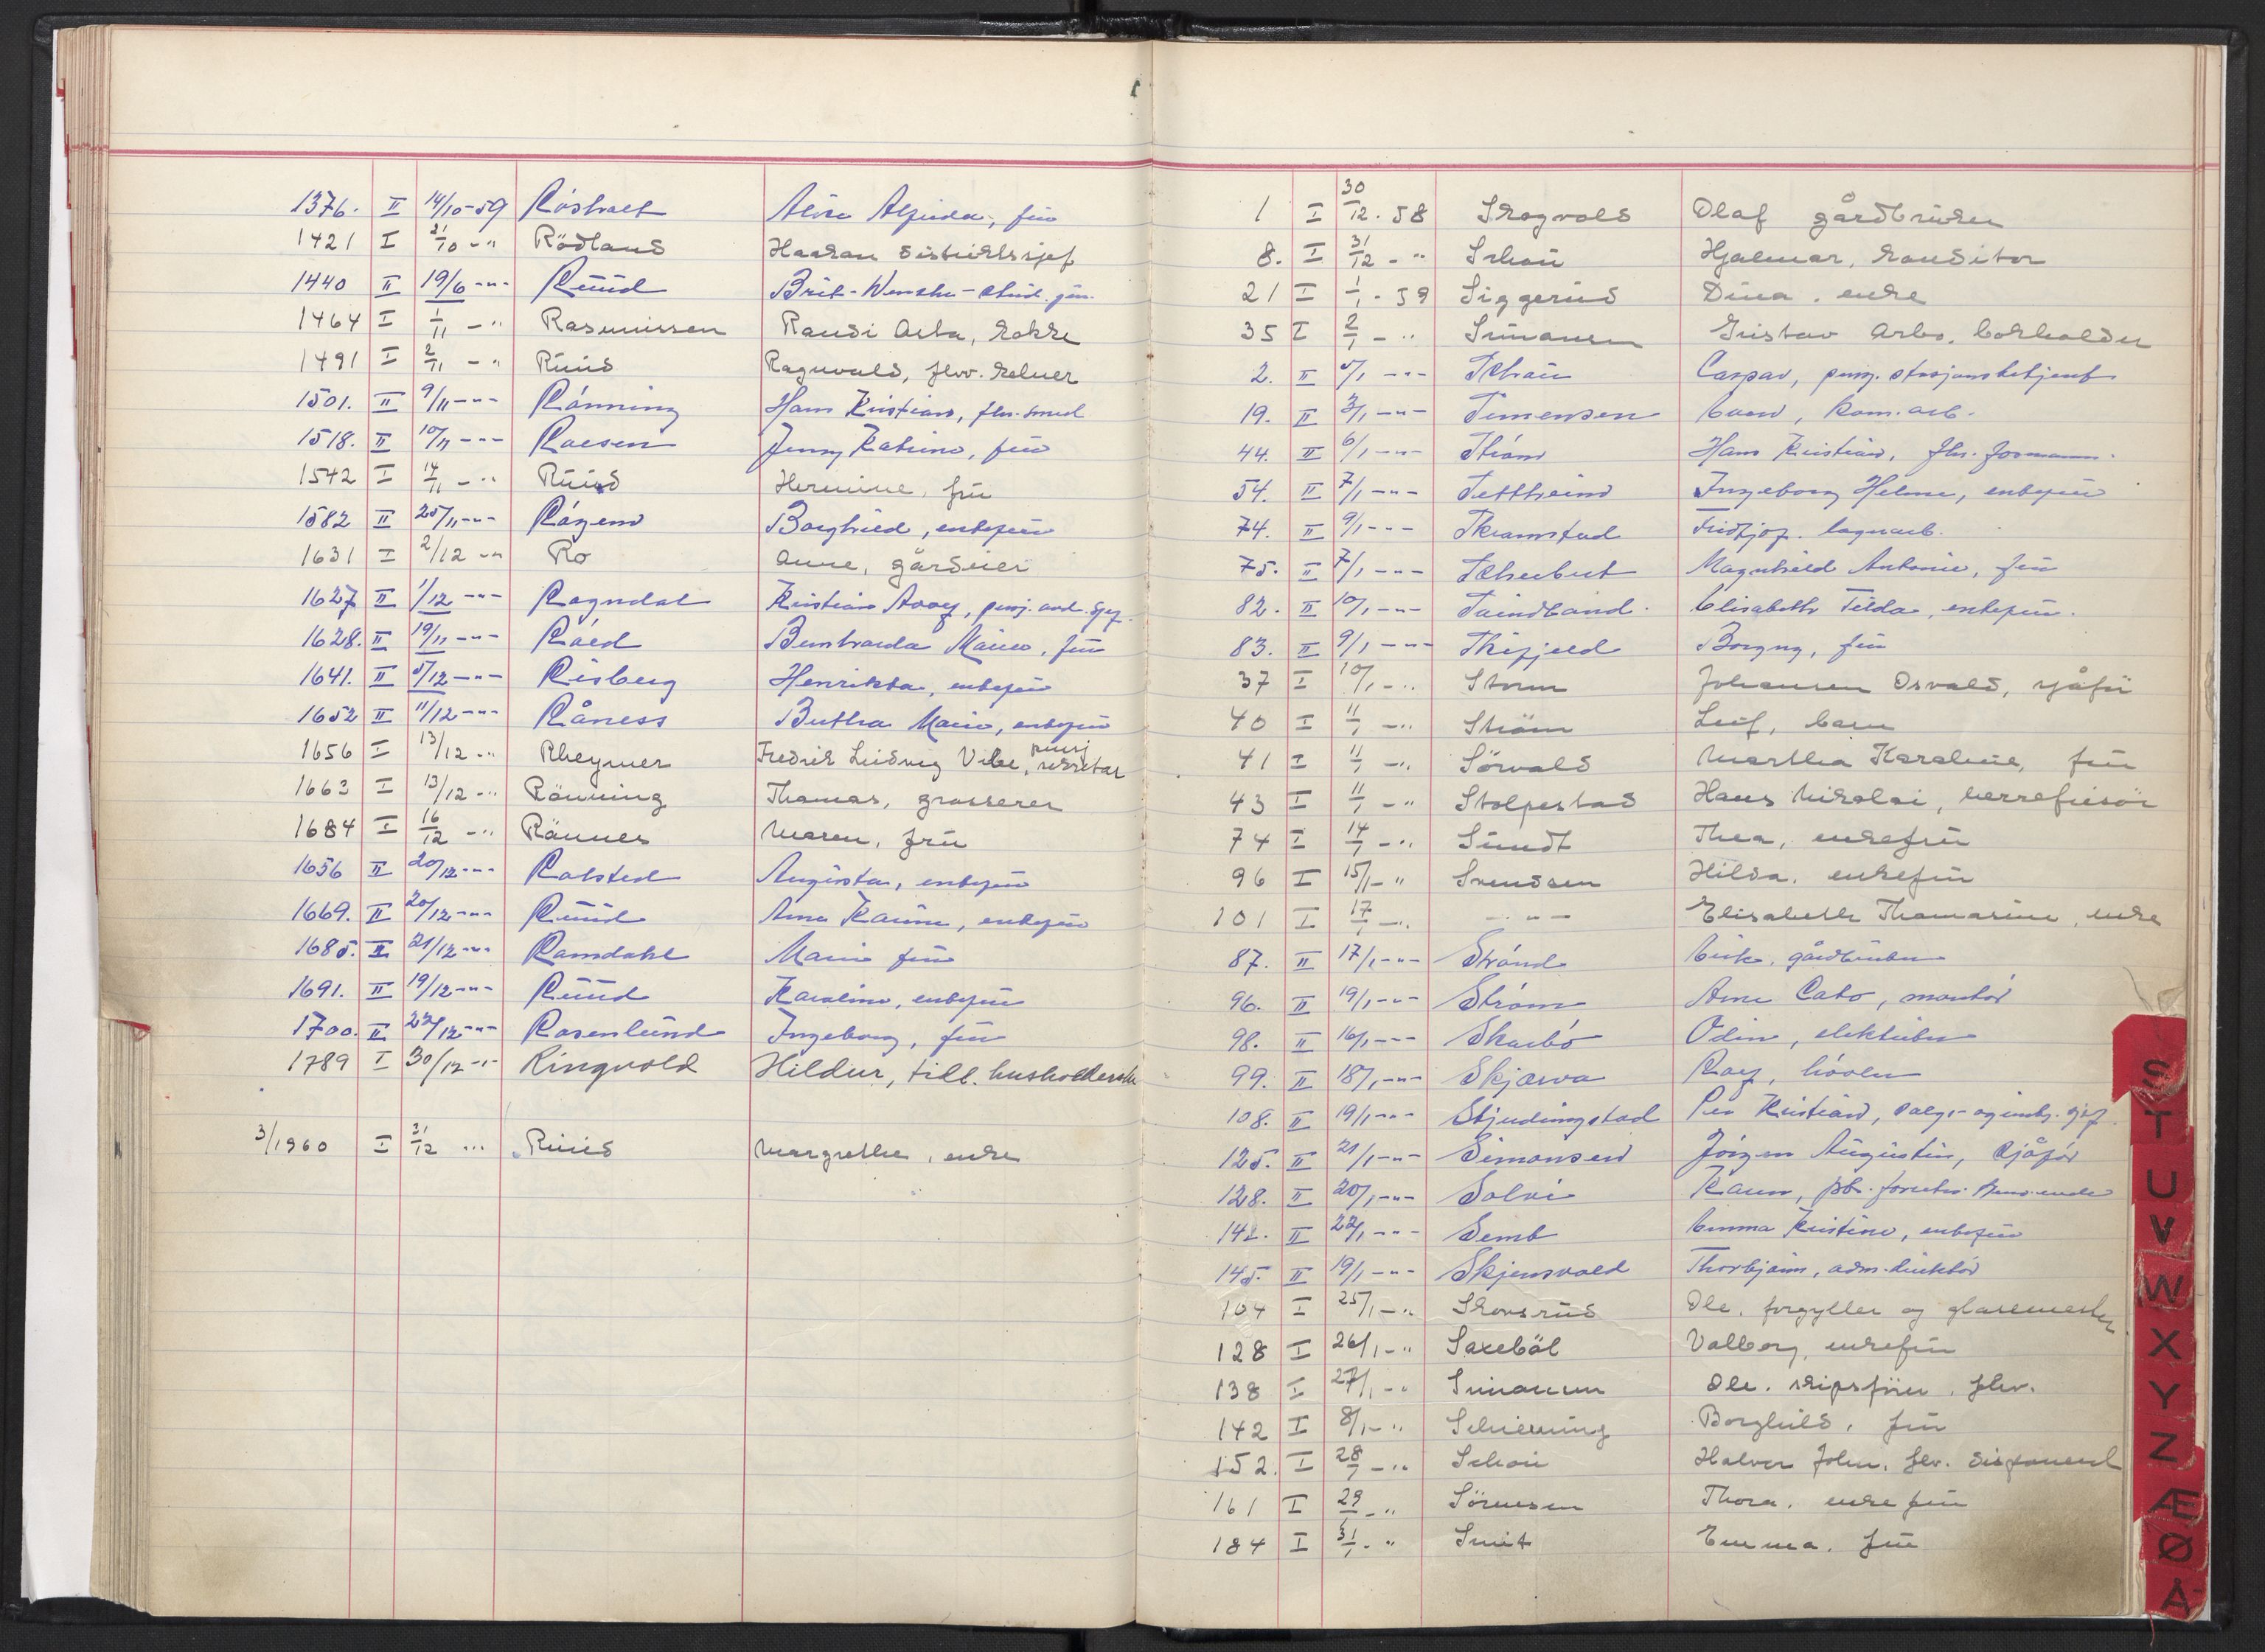 1376. II 14/10-59 Röshalt Alvin Alfrida, frú
1421 I 21/10 - " Rödland Haakon distriktssjef
1440 II 19/6 - " - Rúúd Brit-Wenche - stúd.
1464 I 1/11 - " Rasmússen Randi Asta, kokke
1491 I 2/11 - " Rúúd Ragnvald, fhv. kelner
1501. II 9/11 - " - Rönning Hans Kristian, fhv. smed
1518. II 10/11 - " - Roesen Jenny Katrine, frú
1542 I 14/11 - " Rúúd Hermine, frú
1582 II 25/11 - " - Rögen Borghild, enkefrú
1631 I 2/12 - " Ro Anne, gårdeier
1627 II 1/12 - " - Rogndal Kristian Aray, pensj. avd. sjef.
1628. II 19/11 - " - Röed Bernharda Marie, frú
1641. II 5/12 - " - Risberg Henrikka, enkefrú
1652 II 11/12 - " - Råness Bertha Marie, enkefrú
1656 I 13/12 - " Rheymer Fredrik Lúdvig Vibe, pensj sekretær
1663 I 13/12 - " Rönning Thomas, grosserer
1684 I 16/12 - " Rönnes Maren, frú
1656 II 20/12 - " - Rolsted Aúgústa, enkefrú
1669. II 20/12 - " - Rúúd Anna Karine, enkefrú
1685. II 21/12 - " - Ramdahl Marie frú
1691. II 19/12 - " - Rúúd Karoline, enkefrú
1700. II 22/12 - " - Rosenlúnd Ingeborg, frú
1789 I 30/12 - " - Ringvold Hildur, tidl. husholderske
3/1960 I 31/12 " Rúúd Margrethe, enke
1 I 30/12. 58 Skogvold Olaf gårdbrúker
8. I 31/12 - " Schoú Hjalmar, konditor
21 I 1/1 - 59 Siggerúd Dina, enke
35 I 2/1 - " Simonsen Gústav Arbo, bokholder
2. II 5/1 - " - Schoú Caspar, pensj. stasjonsbetjent
19. II 3/1 - " - Simensen Ewen, kom. arb.
44. II 6/1 - " - Ström Hans Kristian, fhv. formann.
54. II 7/1 - " - Slettheim Ingeborg Helene, enkefrú
74. II 9/1 - " - Skramstad Fridtjof. lagerarb.
75. II 7/1 - " - Schúbert Magnhild Antonie, frú
82. II 10/1 - " - Súindland. Elisabeth Tilda, enkefrú.
83. II 9/1 - " - Skifjeld Borgny, frú
37 I 10/1 - " Storm Johansen Osvald, sjåfør
40 I 11/1 - " Ström Leif, barn
41 I 11/1 - " Sörvald Martha Karoline, frú
43 I 11/1 - " Stolpestad Hans Nikolai, herrefrisör
74 I 14/1 - " Súndt Thea, enkefrú
96 I 15/1 - " Svendsen Hilda, enkefrú
101 I 17/1 - " - " - Elisabeth Thomasine, enke
87. II 17/1 - " - Strand Erik, gårdbrúker
96. II 19/1 - " - Ström Arne Cato, montör
98. II 16/1 - " - Skarbö Odin, elektriker
99. II 18/1 - " - Skjærva Roy, hövler
108. II 19/1 - " - Stjerdingstad Per Kristian, salgs- og innkj. sjef.
125. II 21/1 - " - Simonsen Jörgen Aúgústin, sjåför
128. II 20/1 - " - Solvi Karen,
142. II 22/1 - " - Semb Emma Kristine, enkefrú
145. II 19/1 - " - Skjensvold Thorbjörn, adm. direktör
104 I 25/1 - " Skovsrúd Ole, forgyller og glassmester
128 I 26/1 - " Saxeböl Valborg, enkefrú
138 I 27/1 - " Simonsen Ole. skipsfører, fhv.
142 I 8/1 - " Schierning Borghild, frú
152. I 28/1 - " Schoú Halvor John, fhv. disponent
161 I 29/1 - " Sörensen Thora, enkefrú
184 I 31/1 - " Smit Emma, frú
S
T
U
V
W
X
Y
Z
Æ
Ø
Å